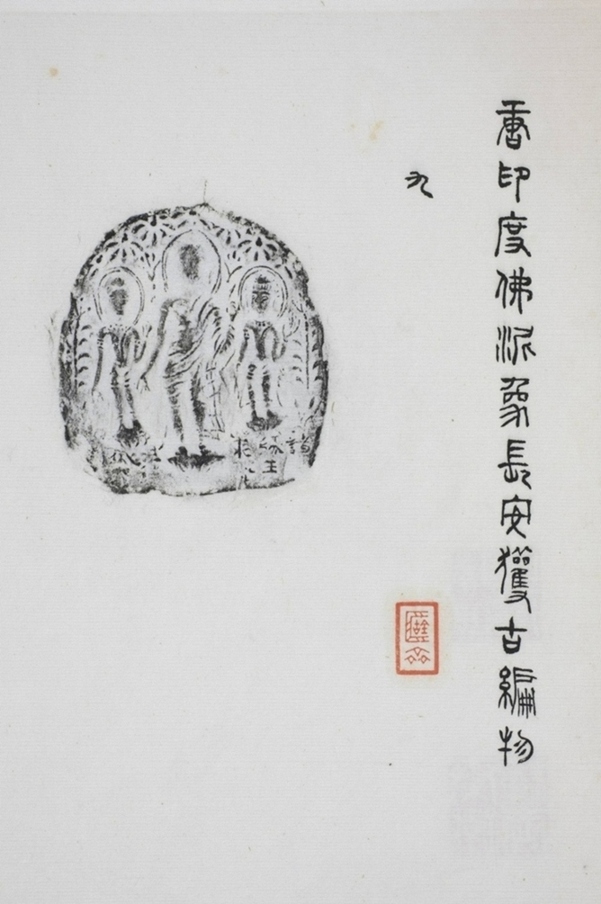 唐印度佛泥象長安獲古編物
九